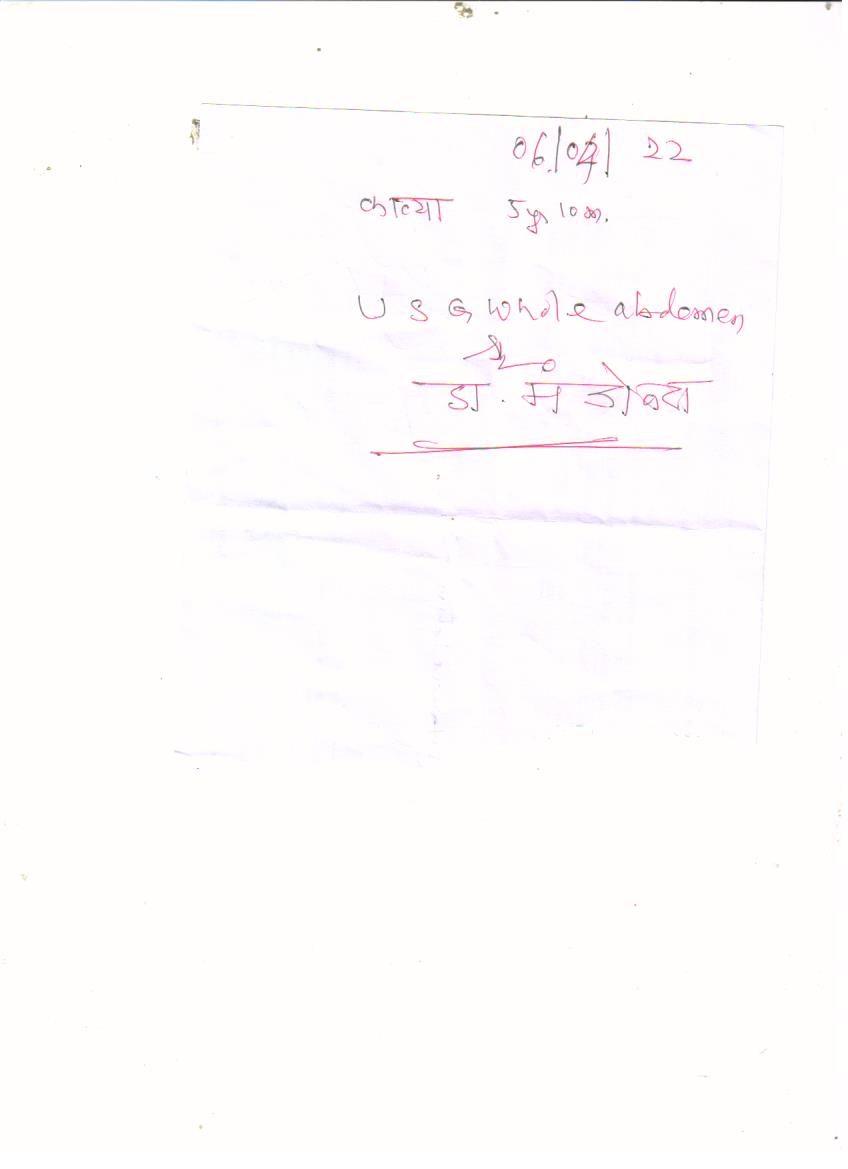 06/04/22
काव्या 5yr 10m.
USG whole abdomen
डा.